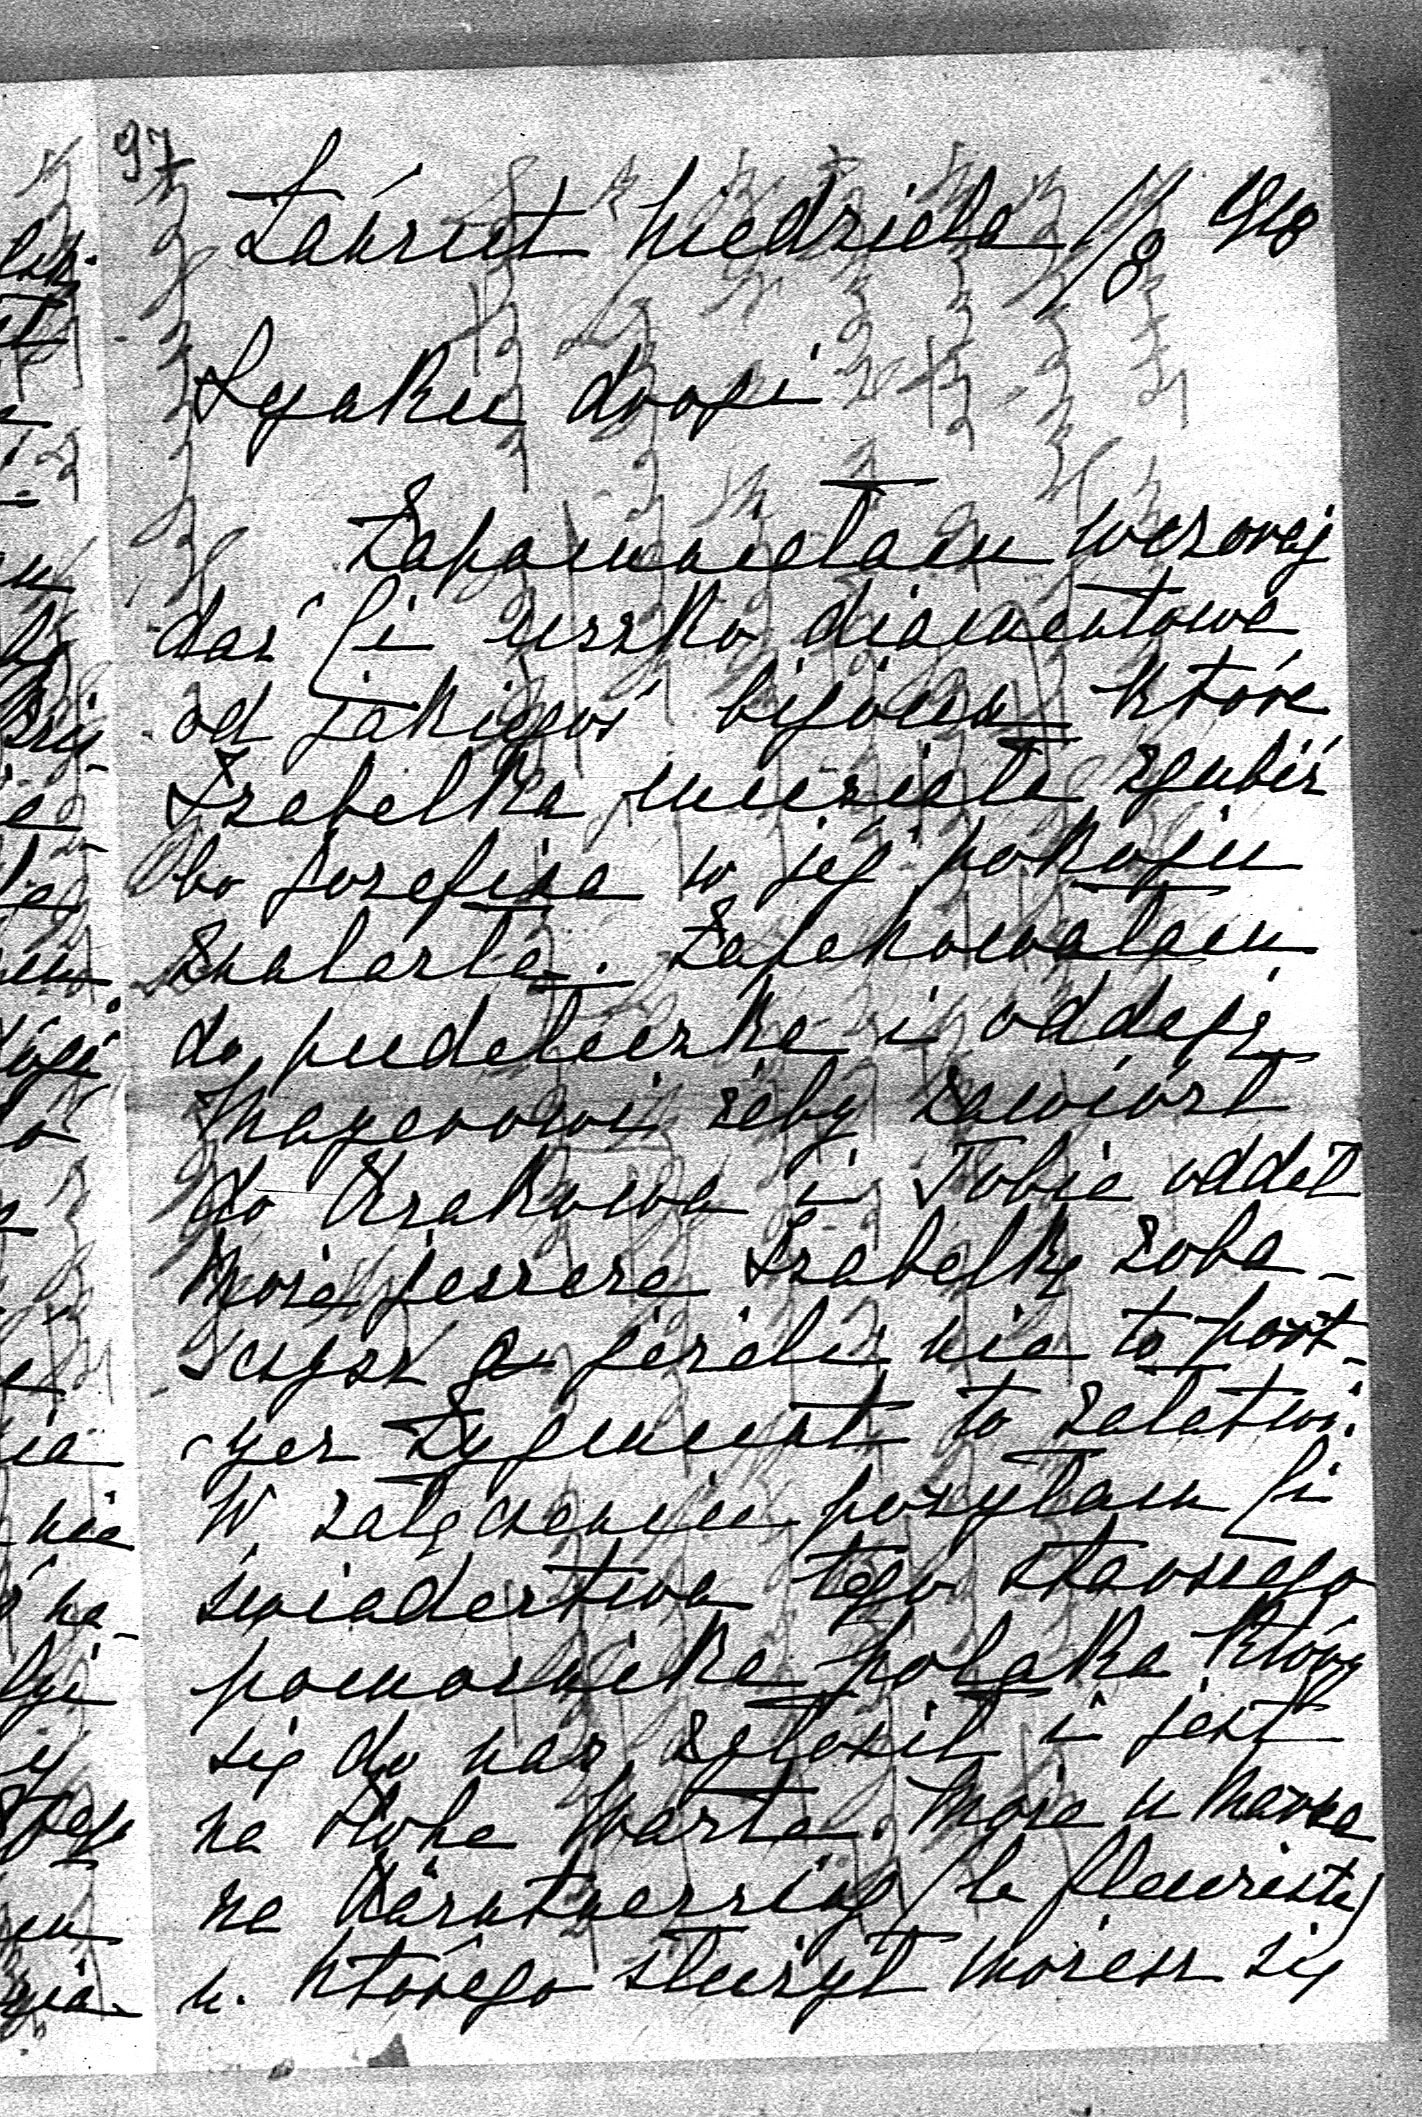 97
Łańcut Niedziela 11/8 918
Syaku drogi
Zapomniałam wczoraj
dać Ci uszko diamentowe
od jakiegoś bijoux które
Izabelka musiała zgubić
bo Józefina w jej pokoju
znalazła. Zapakowałam
do pudełeczka i oddaję
Mayerowi żeby zawiózł
do Krakowa i Tobie oddał
Może jeszcze Izabelkę zoba-
czysz a jeżeli nie to port-
yer Zygmunt to załatwi.
W załączeniu posyłam Ci
świadectwa tego starszego
pomocnika polaka który
się do nas zgłosił i jest
na Stoke Warta. Może u
na Kärntnerring (le fleuriste)
u. którego służył możesz się